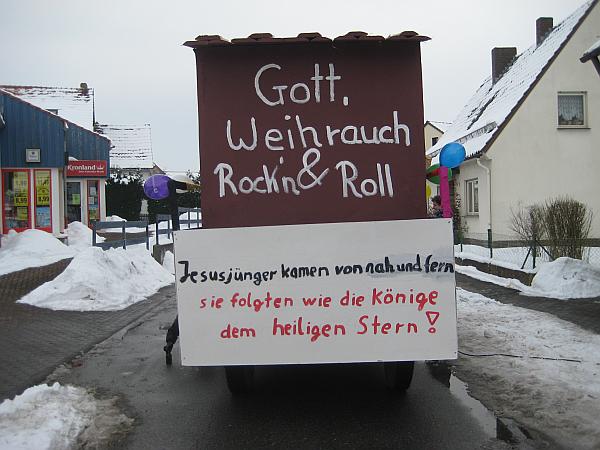 Gott,
Weihrauch
Rock'n & Roll
Jesusjünger kamen von nah und fern
sie folgten wie die Könige
dem heiligen Stern!
Kronland